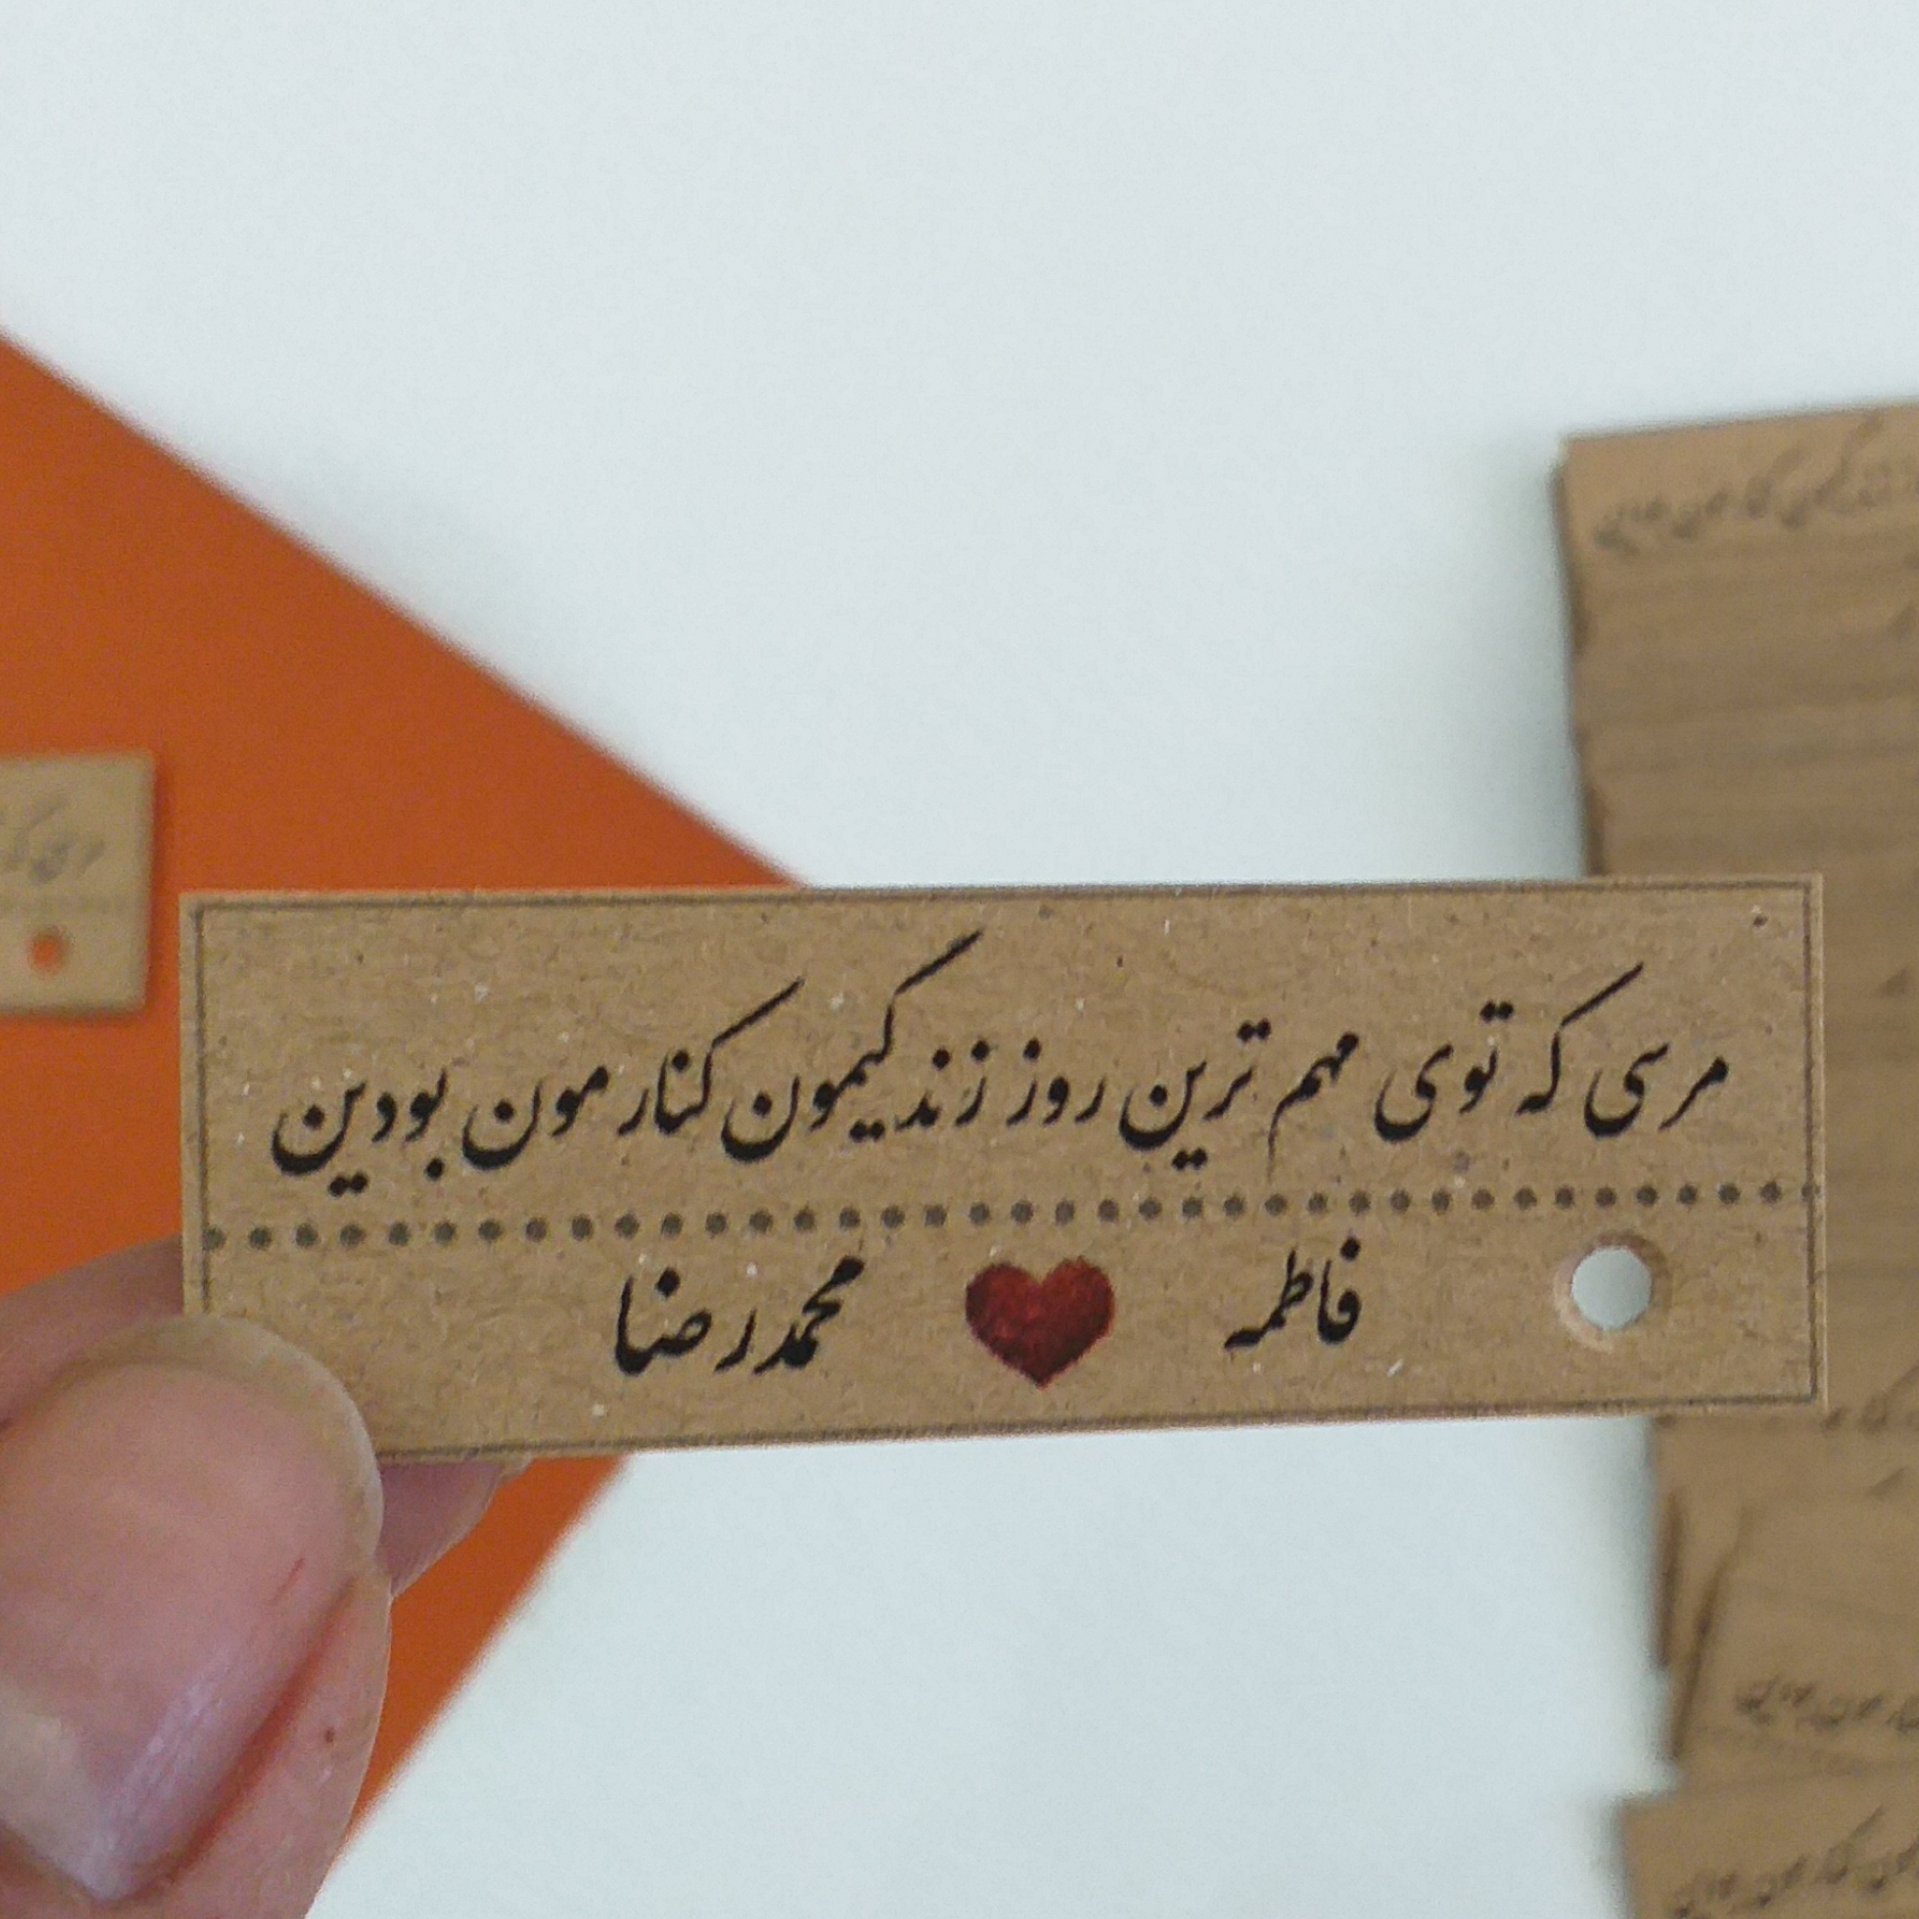 مرسی که توی مهم ترین روز زندگیمون کنارمون بودین
فاطمه ❤ محمدرضا